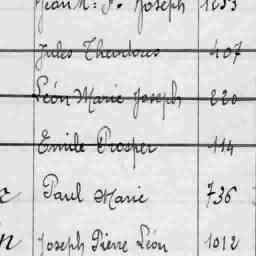 Jean M. F. Joseph 1053
Jules Theodores 407
Léon Marie Joseph 220
Emile Prosper 114
Paul Marie 736
Joseph Pierre Léon 1012